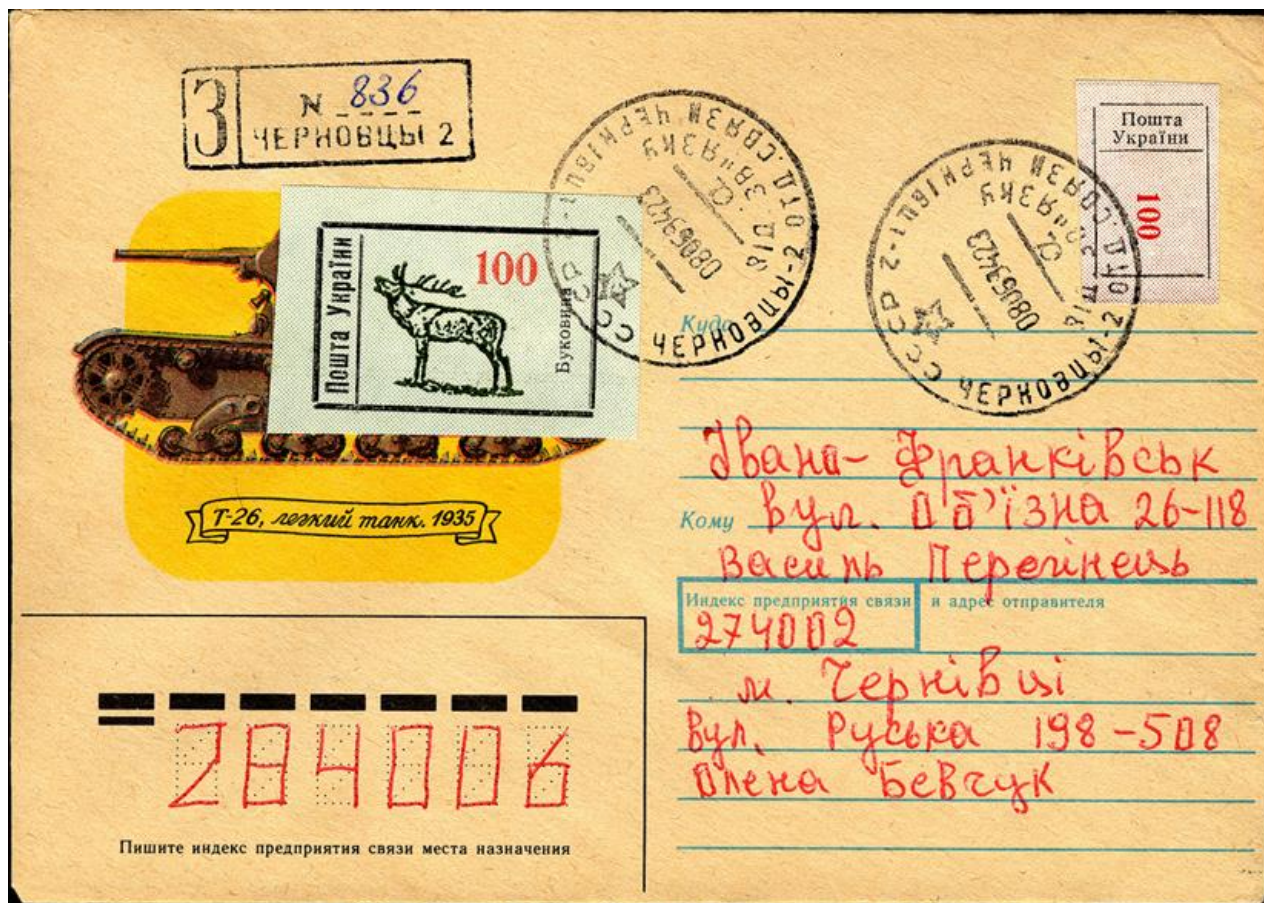 З
N 836
ЧЕРНОВЦЫ 2
Пошта України
100
Буковина
СССР ЧЕРНОВЦЫ-2 ОТД. СВЯЗИ ЧЕРНІВЦІ-2
ВІД. ЗВ"ЯЗКУ
0806931423
СССР ЧЕРНОВЦЫ-2 ОТД. СВЯЗИ ЧЕРНІВЦІ-2
ВІД. ЗВ"ЯЗКУ
Пошта
України
100
Т-26, легкий танк. 1935
Куда
Івано-Франківськ
Кому вул. Об'їзна 26-118
Василь Перегінець
Индекс предприятия связи и адрес отправителя
274002
м. Чернівці
вул. Руська 198-508
Олена Бевчук
284006
Пишите индекс предприятия связи места назначения